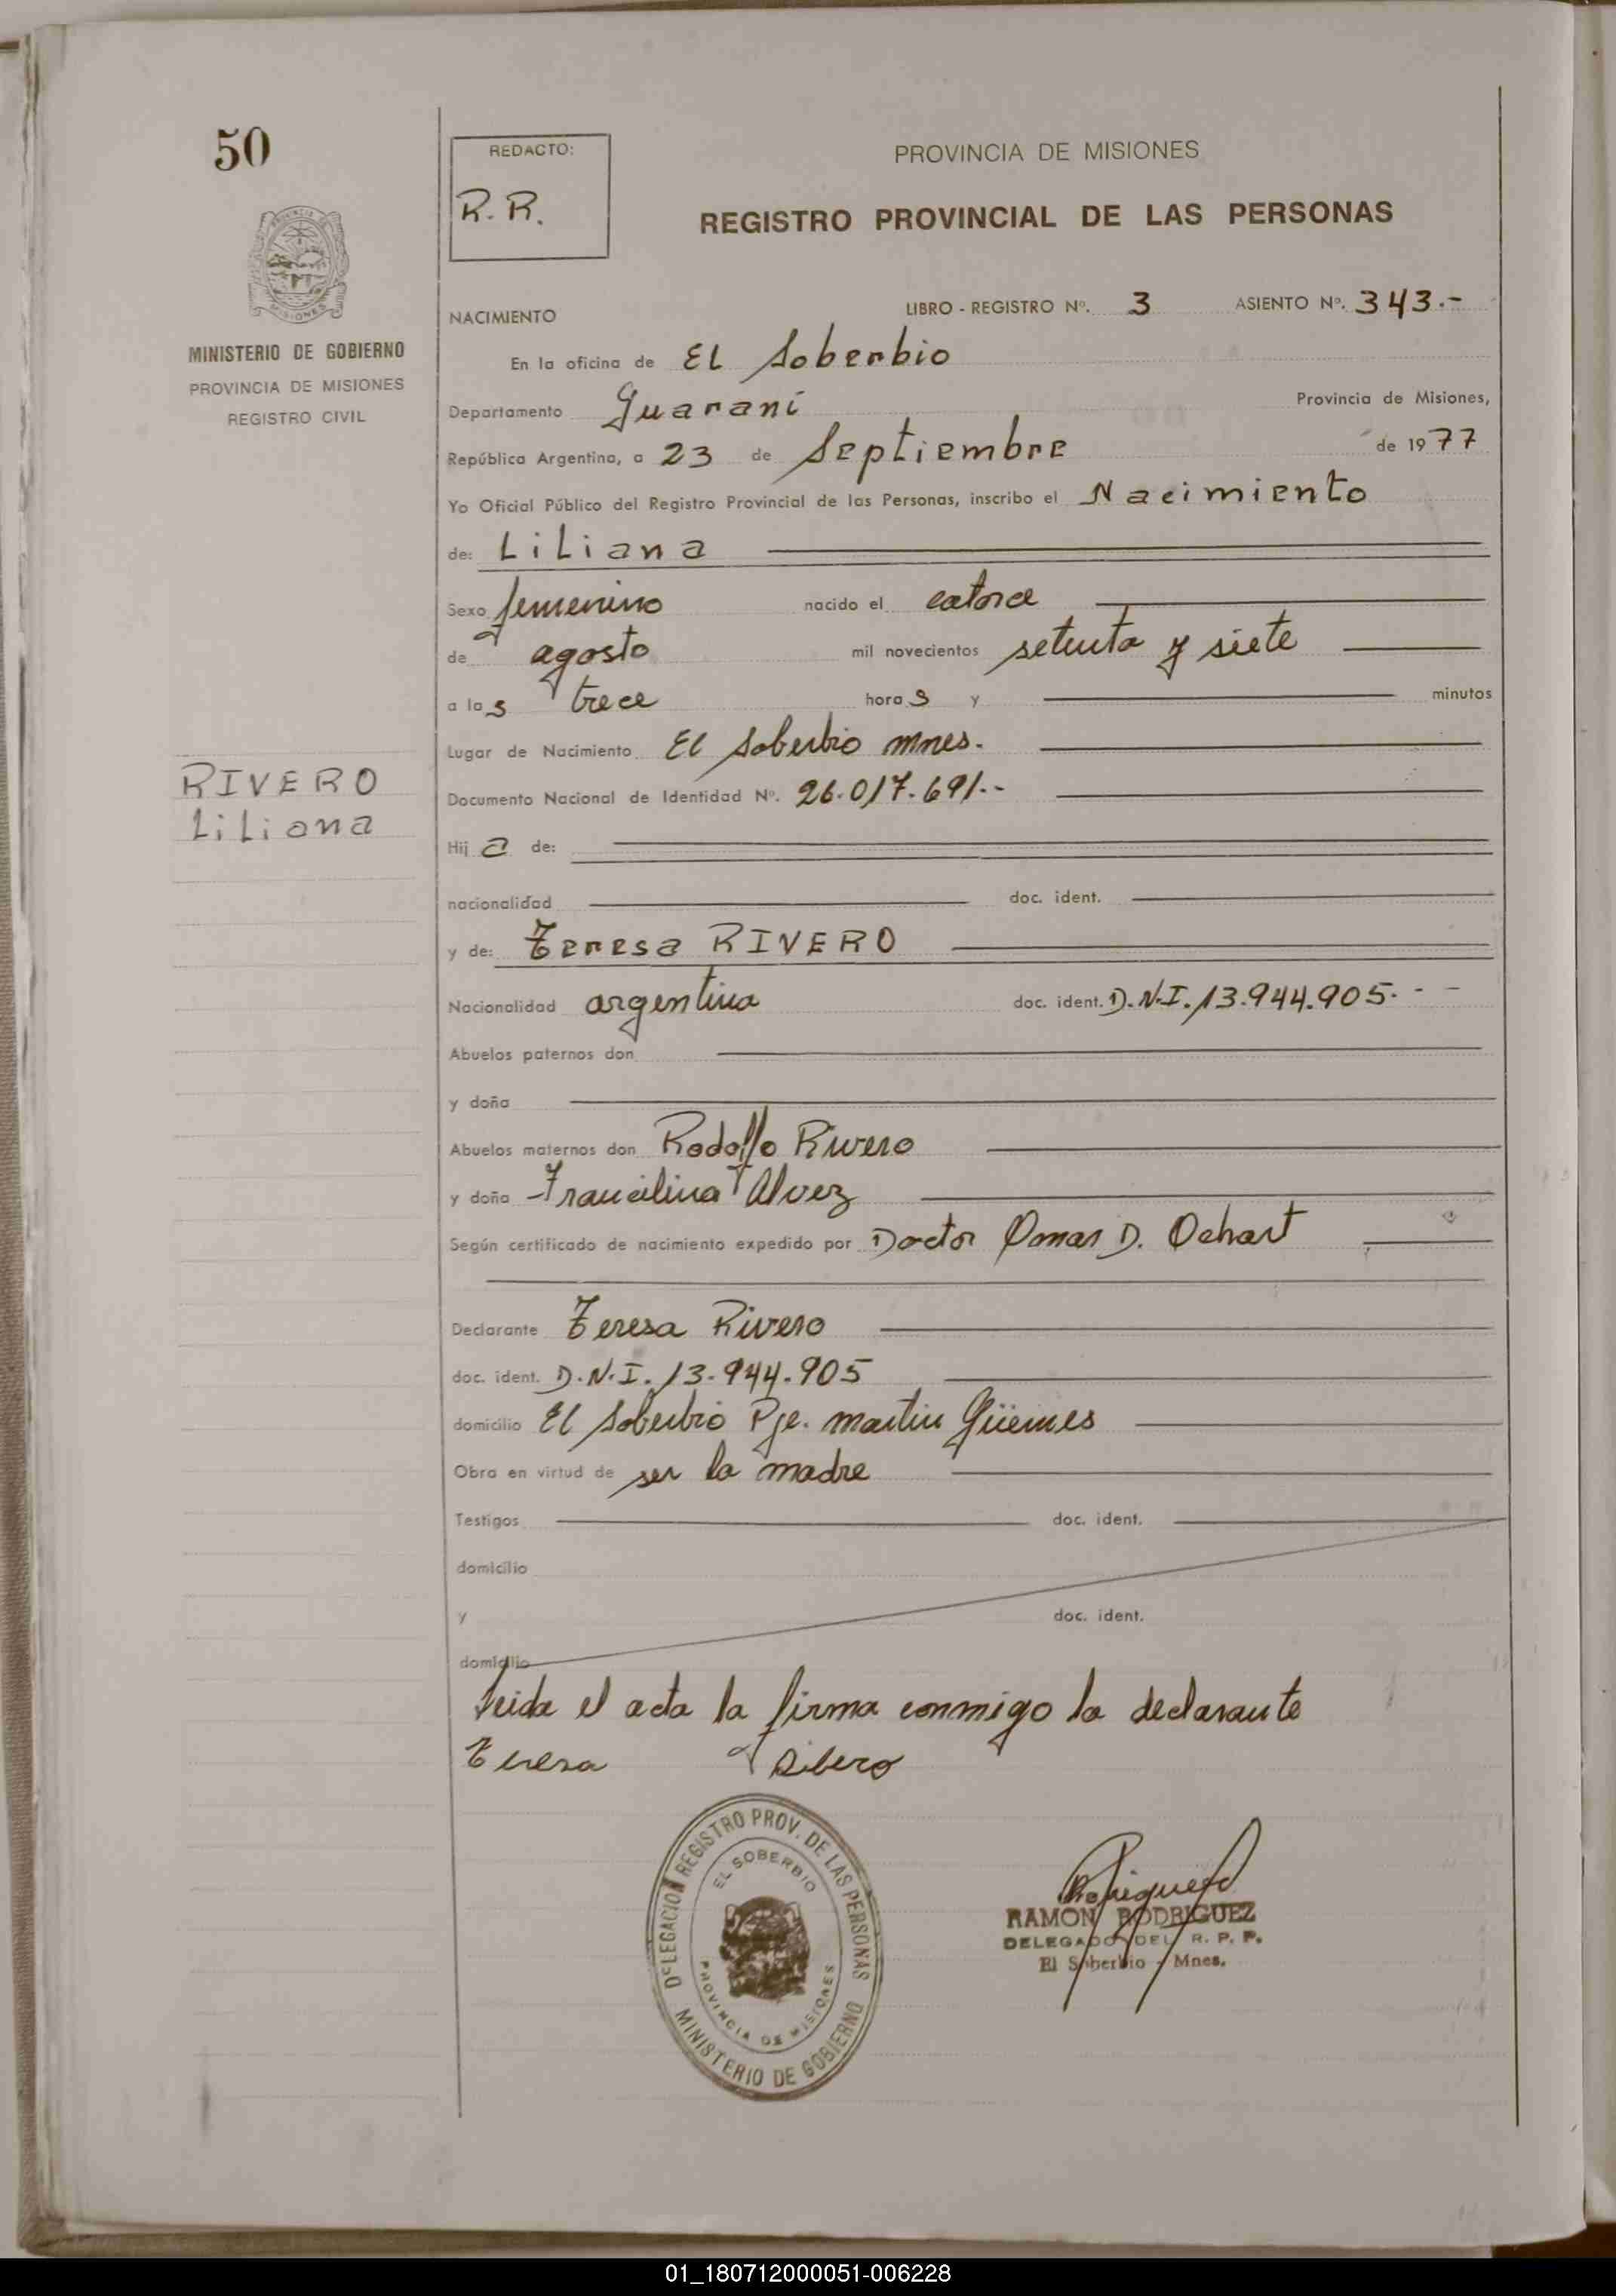 50
REDACTO:
R. R.
PROVINCIA DE MISIONES
REGISTRO PROVINCIAL DE LAS PERSONAS
MISIONES
MINISTERIO DE GOBIERNO
PROVINCIA DE MISIONES
REGISTRO CIVIL
NACIMIENTO
LIBRO - REGISTRO Nº. 3 ASIENTO Nº. 343.-
En la oficina de El Soberbio
Departamento Guaraní Provincia de Misiones,
República Argentina, a 23 de Septiembre de 1977
Yo Oficial Público del Registro Provincial de las Personas, inscribo el Nacimiento
de: Liliana
Sexo femenino nacido el catorce
de agosto mil novecientos setenta y siete
a las trece horas y minutos
Lugar de Nacimiento El Soberbio Mnes.
RIVERO
Liliana
Documento Nacional de Identidad Nº. 26.017.691.--
Hija de:
nacionalidad doc. ident.
y de: Teresa RIVERO
Nacionalidad argentina doc. ident. D.N.I. 13.944.905.--
Abuelos paternos don
y doña
Abuelos maternos don Rodolfo Rivero
y doña Francilina Alvez
Según certificado de nacimiento expedido por Doctor Omar D. Ochart
Declarante Teresa Rivero
doc. ident. D.N.I. 13.944.905
domicilio El Soberbio Pje. Martin Güemes
Obra en virtud de ser la madre
Testigos doc. ident.
domicilio
y doc. ident.
domicilio
Leida el acta la firma conmigo la declarante
Teresa Ribero
DELEGACION REGISTRO PROV. DE LAS PERSONAS
EL SOBERBIO
PROVINCIA DE MISIONES
MINISTERIO DE GOBIERNO
Rodriguez
RAMON RODRIGUEZ
DELEGADO DEL R. P. P.
El Soberbio - Mnes.
01_180712000051-006228